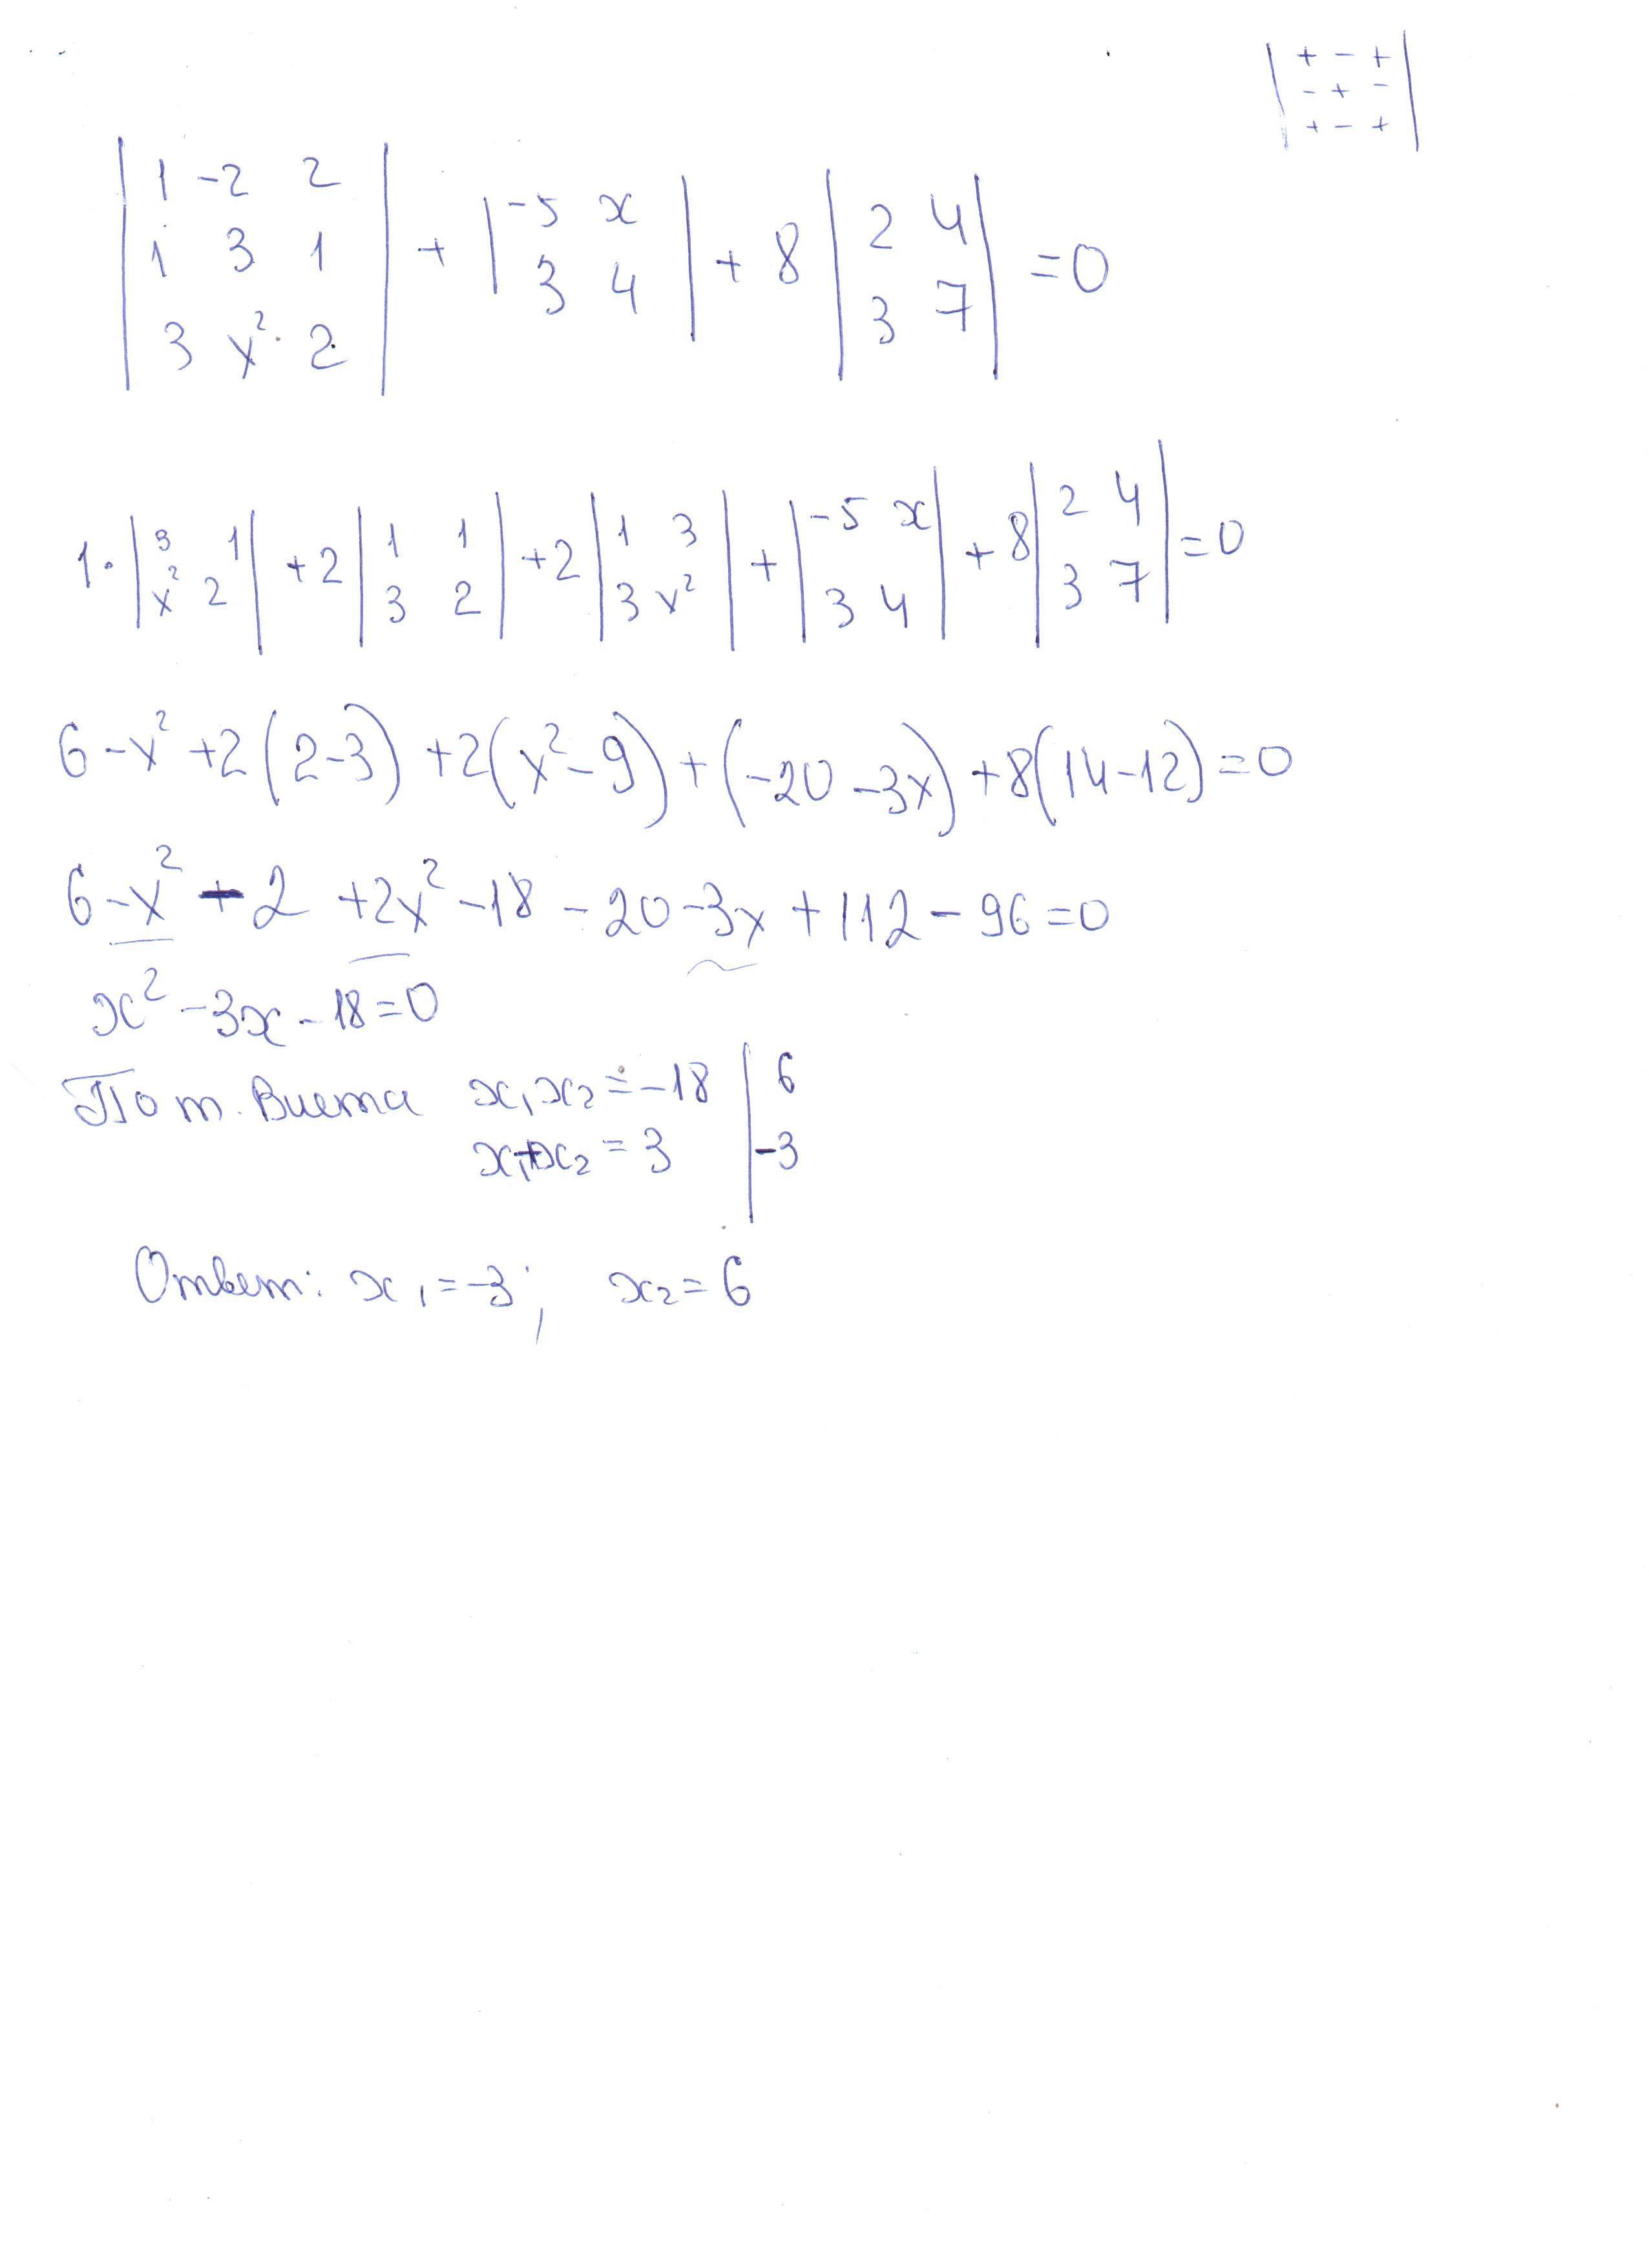 | + - + |
| - + - |
| + - + |
| 1 -2 2 |
| 1 3 1 | + | -5 x | + 8 | 2 4 | = 0
| 3 x² 2 | | 3 4 | | 3 7 |
1· | 3 1 | + 2 | 1 1 | + 2 | 1 3 | + | -5 x | + 8 | 2 4 | = 0
| x² 2 | | 3 2 | | 3 x² | | 3 4 | | 3 7 |
6 - x² + 2(2-3) + 2(x²-9) + (-20-3x) + 8(14-12) = 0
6 - x² - 2 + 2x² - 18 - 20 - 3x + 112 - 96 = 0
x² - 3x - 18 = 0
По т. Виета x₁x₂ = -18 | 6
x₁+x₂ = 3 | -3
Ответ: x₁ = -3; x₂ = 6